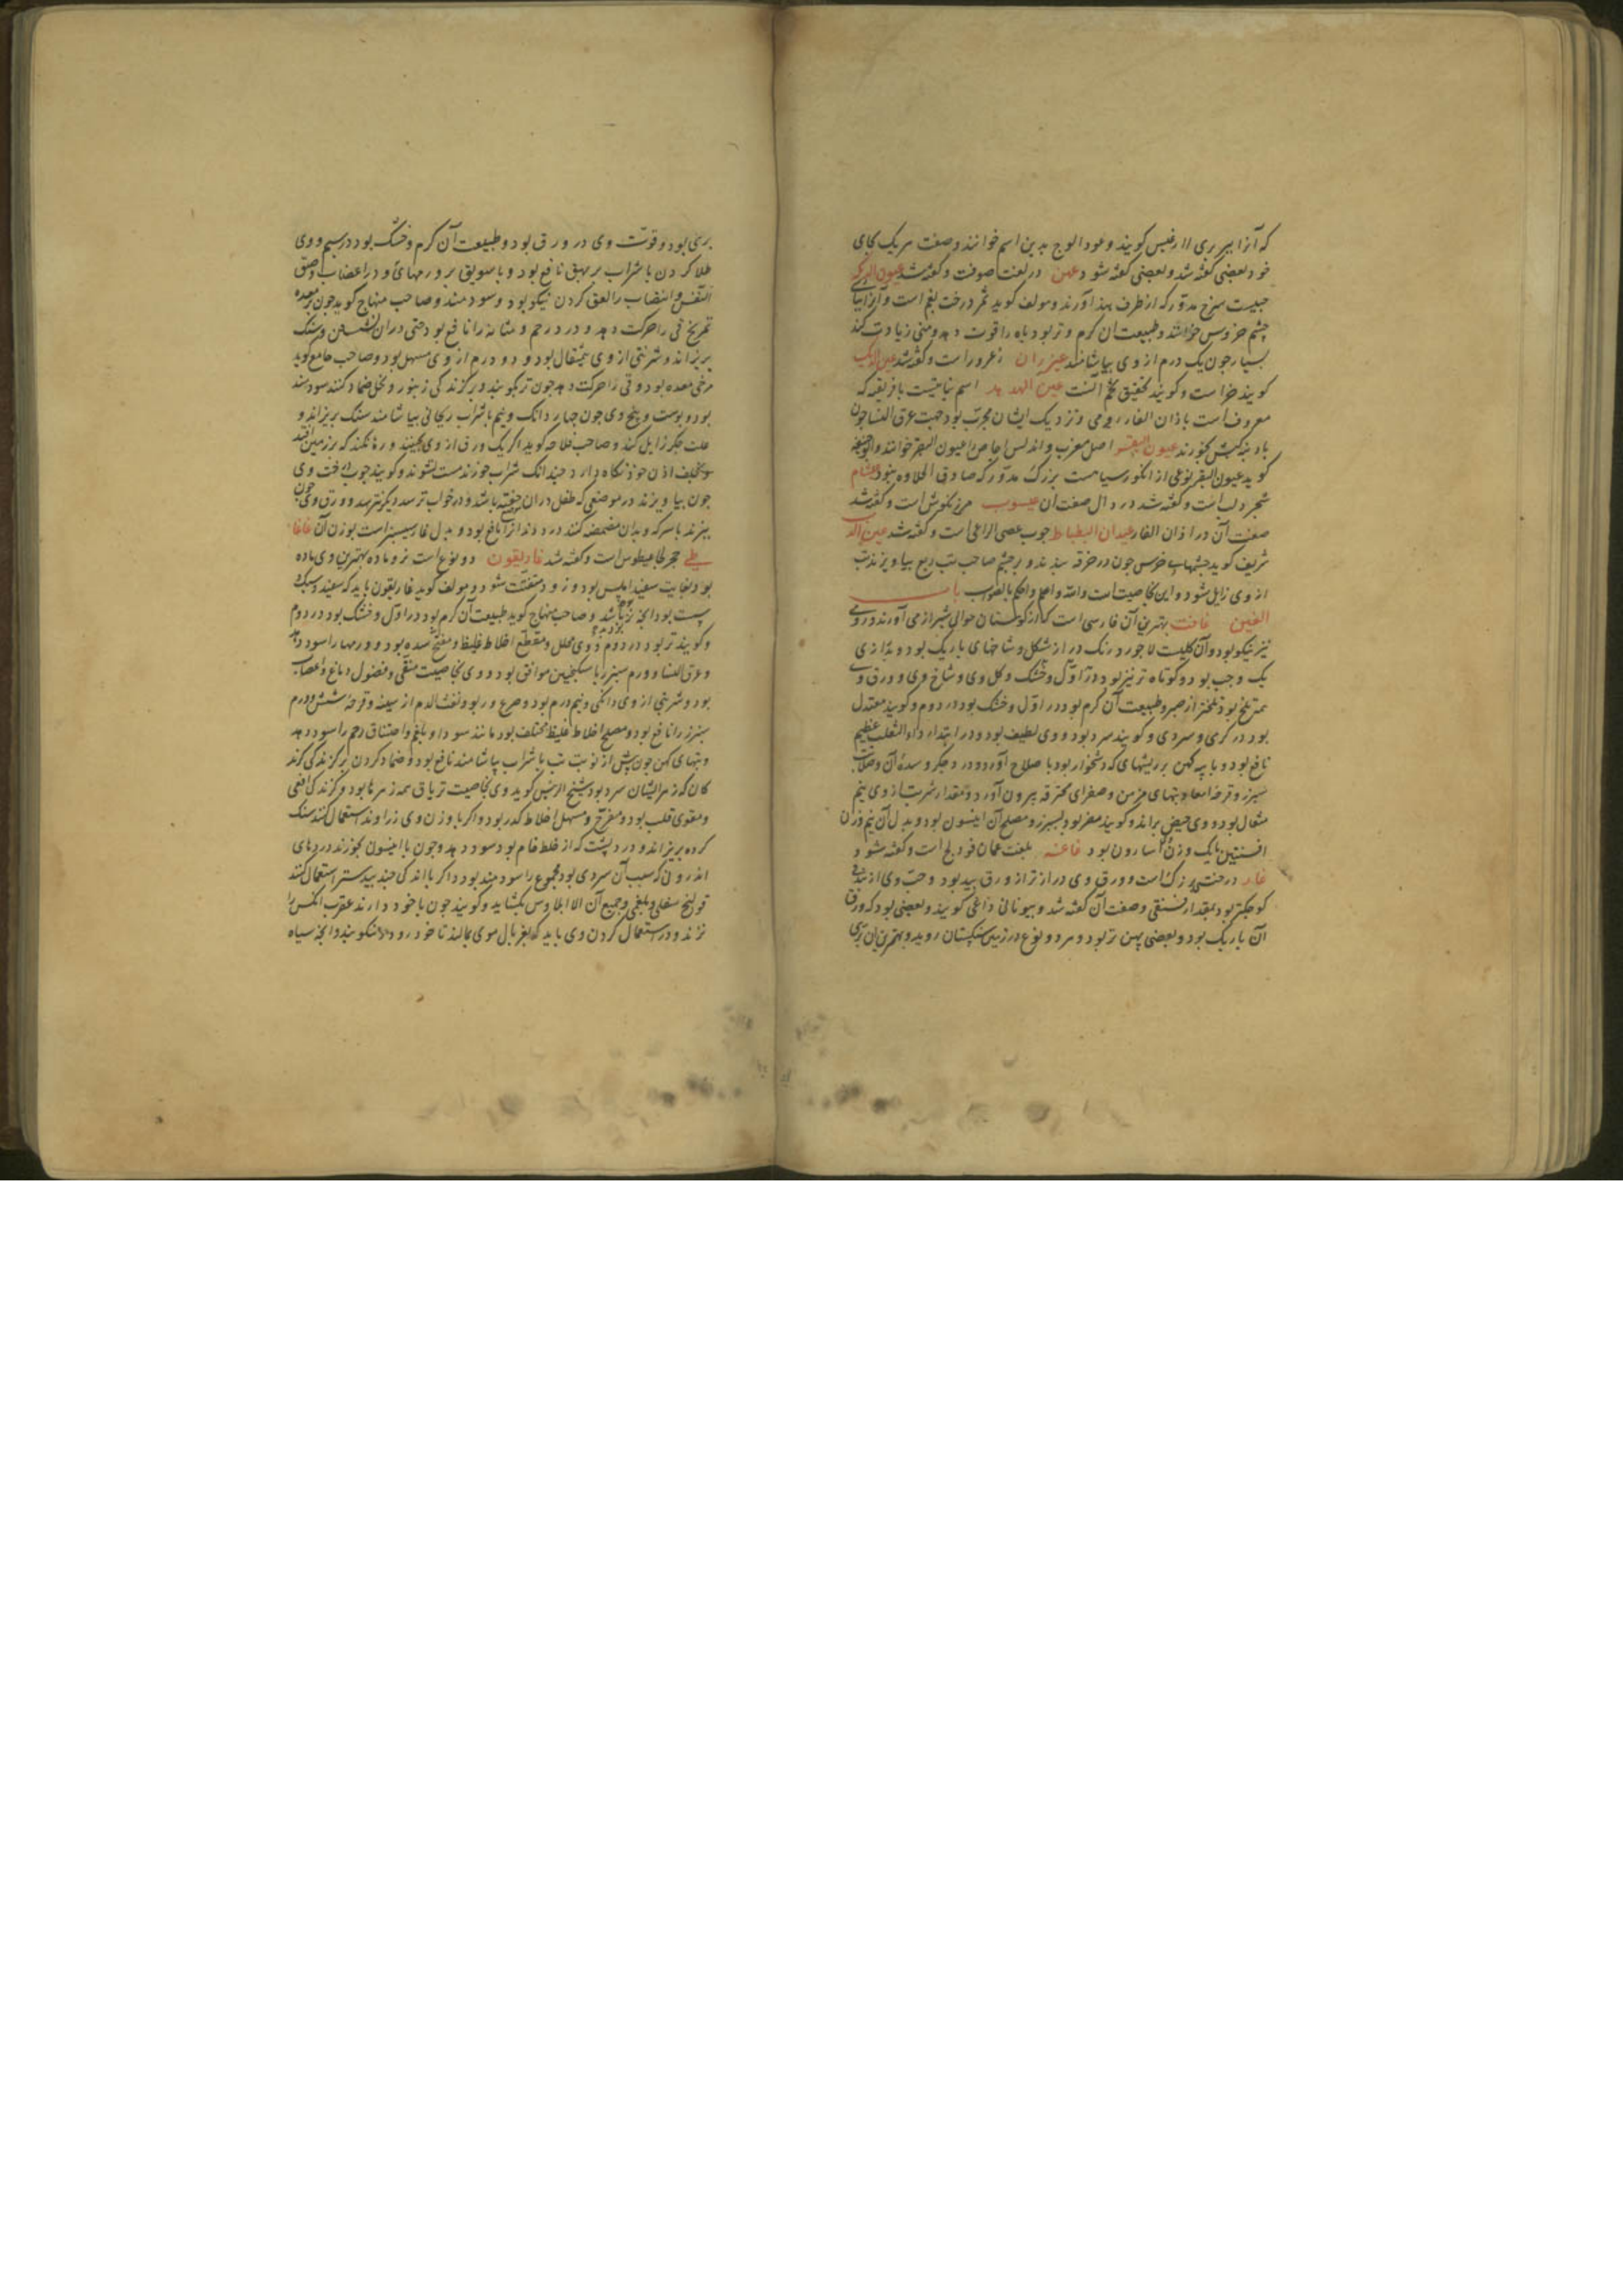 که آنرا ببربری اارغیس گویند وعود الوج بدین اسم خوانند وصفت هریک بجای
خود بعضی گفته شد وبعضی گفته شود عهن در لغت صوفت وگفته شد عیون الدیکه
حبیست سرخ مدور که از طرف هند آورند ومولف گوید ثمر درخت بقم است وآنرا
چشم خروس خوانند وطبیعت آن گرم وتر بود باه را قوت دهد ومنی زیادت کند
بسیار چون یک درم از وی بیاشامند عیزران زعرور است وگفته شد عین الدیک
گویند خرا است وگویند تحقیق آنست عین الهدهد اسم نباتیست بافریقیه که
معروفست باذان الفار رومی ونزدیک ایشان مجرب بود جهت عرق النسا چون
بادنبه کبش بخورند عیون البقر اصل مغرب واندلس اجاص را عیون البقر خوانند وابوحنیفه
گوید عیون البقر نوعی از انگور سیاهست بزرگ مدور که صادق الحلاوه نبود عیثام
شجر دلب است وگفته شد در دال صفت آن عیسوب مرزنگوش است وگفته شد
صفت آن در اذان الفار عیدان البطباط چوب عصی الراعی است وگفته شد عین الد
شریف گوید چشمهای خروس چون در خرقه بندند وبر صاحب تب ربع بیاویزند تب
از وی زایل شود واین بخاصیت است والله واعلم واحکم بالصواب باب
الغین غافت بهترین آن فارسی است که از کوهستان حوالی شیراز می آورند ورومی
نیز نیکو بود وآن گلیست لاجورد رنگ دراز شکل وشاخهای باریک بود ودرازی
یک وجب بود وکوتاه تر نیز بود وگل وی وشاخ وی وورق وی
همه تلخ بود تلختر از صبر وطبیعت آن گرم بود در اول وخشک بود در دوم وگویند معتدل
بود در گرمی وسردی وگویند سرد بود ووی لطیف بود ودر ابتداء داء الثعلب عظیم
نافع بود وبا پیه کهن بر ریشهای که دشخوار بود باصلاح آورد ودرد جگر وسده آن وصلابت
سپرز وقرحه امعا وتبهای مزمن وصفرای محترقه بیرون آورد ومقدار شربت از وی نیم
مثقال بود ووی حیض براند وگویند مضر بود بسپرز ومصلح آن انیسون بود وبدل آن نیم وزن
افسنتین یا یک وزن آن اسارون بود فاغیه بلغت عمان فودنج است وگفته شود
غار درختی بزرگ است وورق وی درازتر از ورق بید بود وحب وی از بندق
کوچکتر بود بمقدار فستقی وصفت آن گفته شد وبیونانی ذاغی گویند وبعضی بود که ورق
آن باریک بود وبعضی پهن تر بود وهر دو نوع در زمین سنگستان روید وبهترین آن
بری بود وقوت وی در ورق بود وطبیعت آن گرم وخشک بود در سیم ووی
طلا کردن با شراب بر بهق نافع بود وبا سویق بر ورمهای ودر اعضاب وضیق
النفس وانتصاب را لعق کردن نیکو بود وسودمند وصاحب منهاج گوید چون بر معده
تمریخ قی را حرکت دهد ودرد رحم ومثانه را نافع بود حتی در آن نشستن وسنگ
بریزاند وشربتی از وی نیم مثقال بود ودو درم از وی مسهل بود وصاحب جامع گوید
مرخی معده بود وقی را حرکت دهد چون تر بکوبند وبر گزندگی زنبور ونحل ضماد کنند سود مند
بود وپوست وبیخ وی چون چهار دانگ ونیم با شراب ریحانی بیاشامند سنگ بریزاند و
علت جگر زایل کند وصاحب فلاحه گوید اگر یک ورق از وی بچینند ورها نکنند که بر زمین افتد
وبخلف اذن خود نگاه دارد چندانک شراب خورند مست نشوند وگویند چوب درخت وی
چون بیاویزند در موضعی که طفل در آن خفته باشد ودر خواب ترسد دیگر نترسد وورق وی چون
بپزند با سرکه وبدان مضمضه کنند درد دندانرا نافع بود وبدل غار سیسنبر است بوزن آن غاغا
طی حجر غاغیطوس است وگفته شد غاریقون دو نوع است نر وماده بهترین وی ماده
بود وبغایت سفید املس بود وزود متفتت شود ومولف گوید غاریقون باید که سفید وسبک و
سست بود آنچه نر باشد وصاحب منهاج گوید طبیعت آن گرم بود در اول وخشک بود در دوم
وگویند تر بود در دوم ووی محلل ومقطع اخلاط غلیظ ومفتح سده بود وورمها را سود دهد
وعرق النسا وورم سپرز با سکنجبین موافق بود ووی بخاصیت منقی وفضول دماغ واعصاب
بود وشربتی از وی دانگی ونیم درم بود وصرع وربو ونفث الدم از سینه وقرحه شش ودرم
سپرز را نافع بود ومصلح اخلاط غلیظ مختلف بود مانند سودا وبلغم واختناق رحم را سود دهد
وتبهای کهن چون پیش از نوبت تب با شراب بیاشامند نافع بود وضماد کردن بر گزندگی گزند
کان که زهر ایشان سرد بود وشیخ الرئیس گوید وی بخاصیت تریاق همه زهرها بود وگزندگی افعی
ومقوی قلب بود ومفرح ومسهل اخلاط کدر بود واگر با وزن وی زراوند استعمال کنند سنگ
گرده بریزاند ودرد پشت که از خلط خام بود سود دهد وچون با انیسون بخورند دردهای
اندرونی که سبب آن سردی بود مجموع را سودمند بود واگر با اندکی جندبیدستر استعمال کنند
قولنج سفلی وبلغمی وجمیع آن الا ایلاوس بگشاید وگویند چون با خود دارند عقرب آنکس را
نزند ودر استعمال کردن وی باید که بغربال موی بمالند تا خود رود والا نکوبند وآنچه سیاه